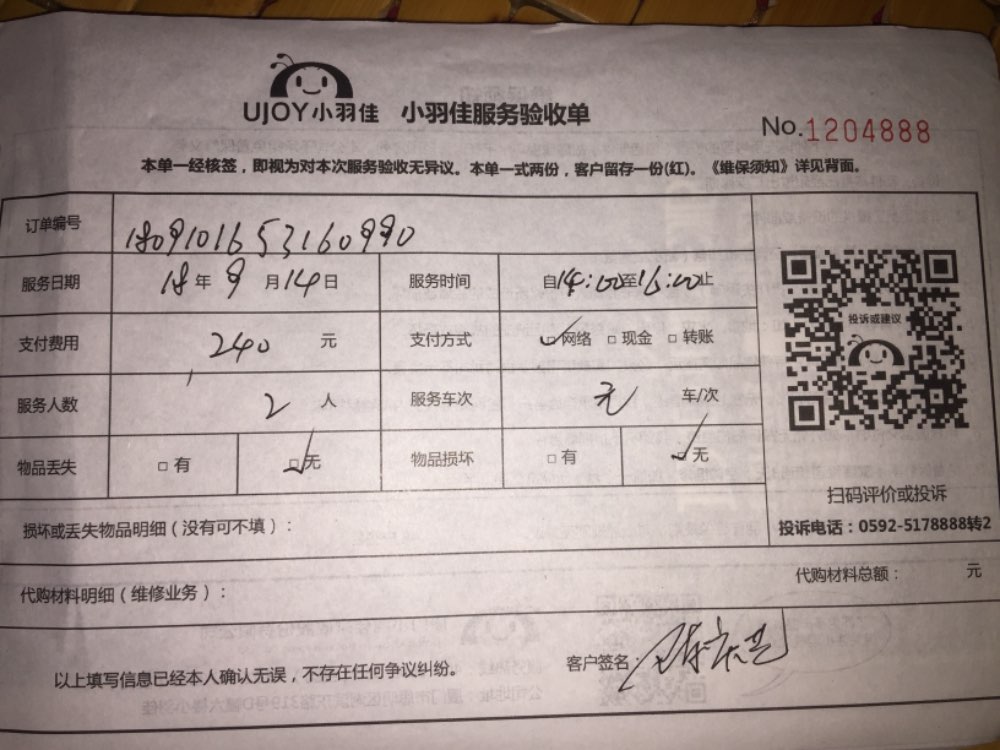 UJOY小羽佳 小羽佳服务验收单
No.1204888
本单一经核签，即视为对本次服务验收无异议。本单一式两份，客户留存一份(红)。《维保须知》详见背面。
订单编号 1809101653160990
服务日期 18年9月14日 服务时间 自14:00至16:00止
投诉或建议
支付费用 240 元 支付方式 网络 现金 转账
服务人数 2 人 服务车次 无 车/次
物品丢失 有 无 物品损坏 有 无
扫码评价或投诉
投诉电话：0592-5178888转2
损坏或丢失物品明细（没有可不填）：
代购材料明细（维修业务）： 代购材料总额： 元
以上填写信息已经本人确认无误，不存在任何争议纠纷。 客户签名